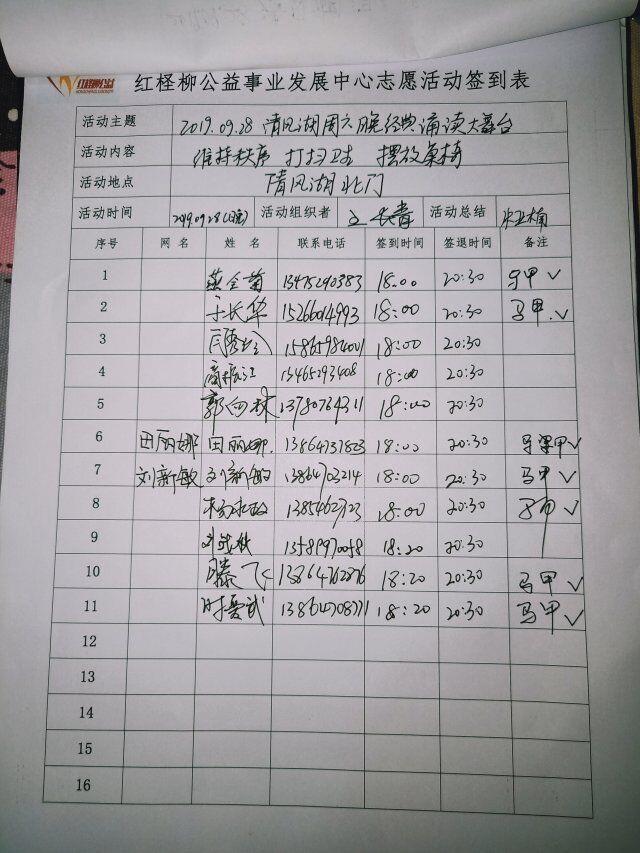 红柽柳公益
红柽柳公益事业发展中心志愿活动签到表
活动主题 2019.09.28 清风湖周六晚经典诵读大舞台
活动内容 维持秩序 打扫卫生 摆放桌椅
活动地点 清风湖北门
活动时间 2019.09.28 活动组织者 活动总结
序号 网名 姓名 联系电话 签到时间 签退时间 备注
1 13475290383 18:00 20:30 马甲 √
2 于长华 15266014993 18:00 20:30 马甲 √
3 15865984001 18:00 20:30
4 13465293408 18:00 20:30
5 13780764311 18:00 20:30
6 田丽娜 田丽娜 13864737823 18:00 20:30 马甲 √
7 刘新敏 刘新敏 13864703214 18:00 20:30 马甲 √
8 18:00 20:30 √
9 13581970058 18:20 20:30
10 滕飞 13864762876 18:20 20:30 马甲 √
11 18:20 20:30 马甲 √
12
13
14
15
16